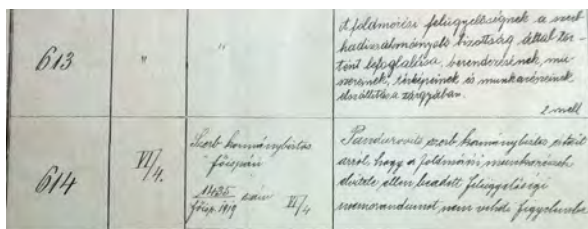 613 " " A földmérési felügyelőségnek a szerb
hadizsákmányoló bizottság által tör-
tént lefoglalása, berendezésének, mű
szereinek, térképeinek és munkarészeinek
elszállítása tárgyában.
2 mell
614 VI/4. Szerb kormánybiztos
főispán
1435
főisp. 1919 szám VI/4
Pandurovits szerb kormánybiztos értesít
arról, hogy a földmérési munkarészek
elvitele ellen beadott felügyelőségi
memorandumot nem veheti figyelembe